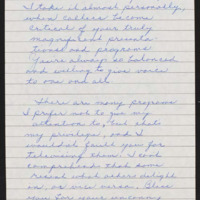 I take it almost personally,
when callers become
critical of your truly
magnificent presenta-
tions and programs
You're always so balanced
and willing to give voice
to one and all.
There are many programs
I prefer not to give my
attention to, but that's
my privilege, and I
wouldn't fault you for
televising them. I can
comprehend that some
resist what others delight
in, or vice versa. Bless
you for your